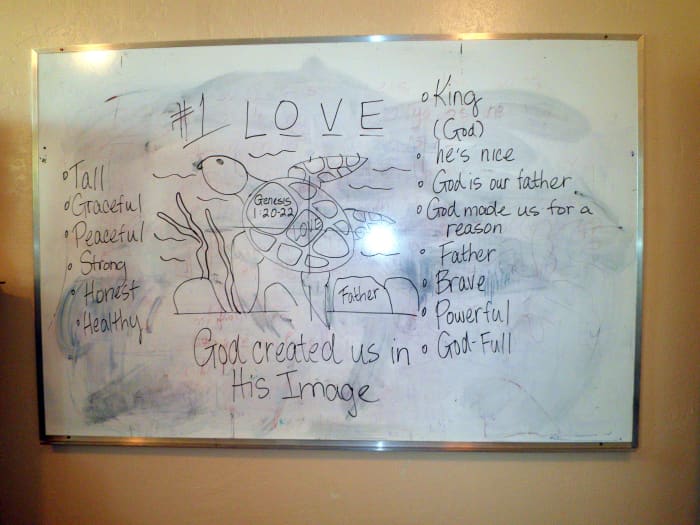 #1 LOVE
• Tall
• Graceful
• Peaceful
• Strong
• Honest
• Healthy
Genesis
1:20-22
LOVE
Father
God created us in
His Image
• King
(God)
• he's nice
• God is our father
• God made us for a
reason
• Father
• Brave
• Powerful
• God-Full